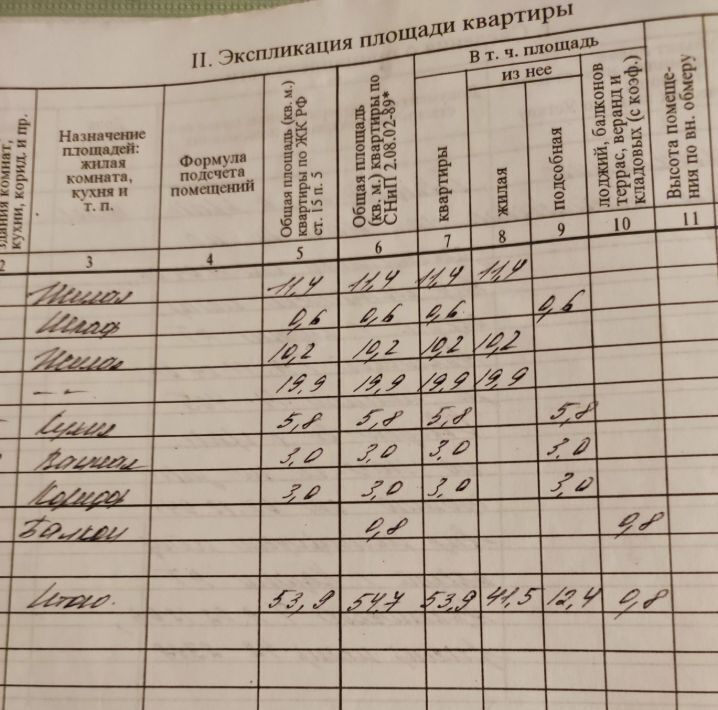 II. Экспликация площади квартиры
здания комнат, кухни, корид. и пр.
Назначение площадей: жилая комната, кухня и т. п.
Формула подсчета помещений
Общая площадь (кв. м.) квартиры по ЖК РФ ст. 15 п. 5
Общая площадь (кв. м.) квартиры по СНиП 2.08.02-89*
В т. ч. площадь
квартиры
из нее
жилая
подсобная
лоджий, балконов террас, веранд и кладовых (с коэф.)
Высота помеще- ния по вн. обмеру
2 3 4 5 6 7 8 9 10 11
Жилая 11,4 11,4 11,4 11,4
Шкаф 0,6 0,6 0,6 0,6
Жилая 10,2 10,2 10,2 10,2
-- 19,9 19,9 19,9 19,9
Кухня 5,8 5,8 5,8 5,8
Ванная 3,0 3,0 3,0 3,0
Коридор 3,0 3,0 3,0 3,0
Балкон 0,8 0,8
Итого. 53,9 54,7 53,9 41,5 12,4 0,8